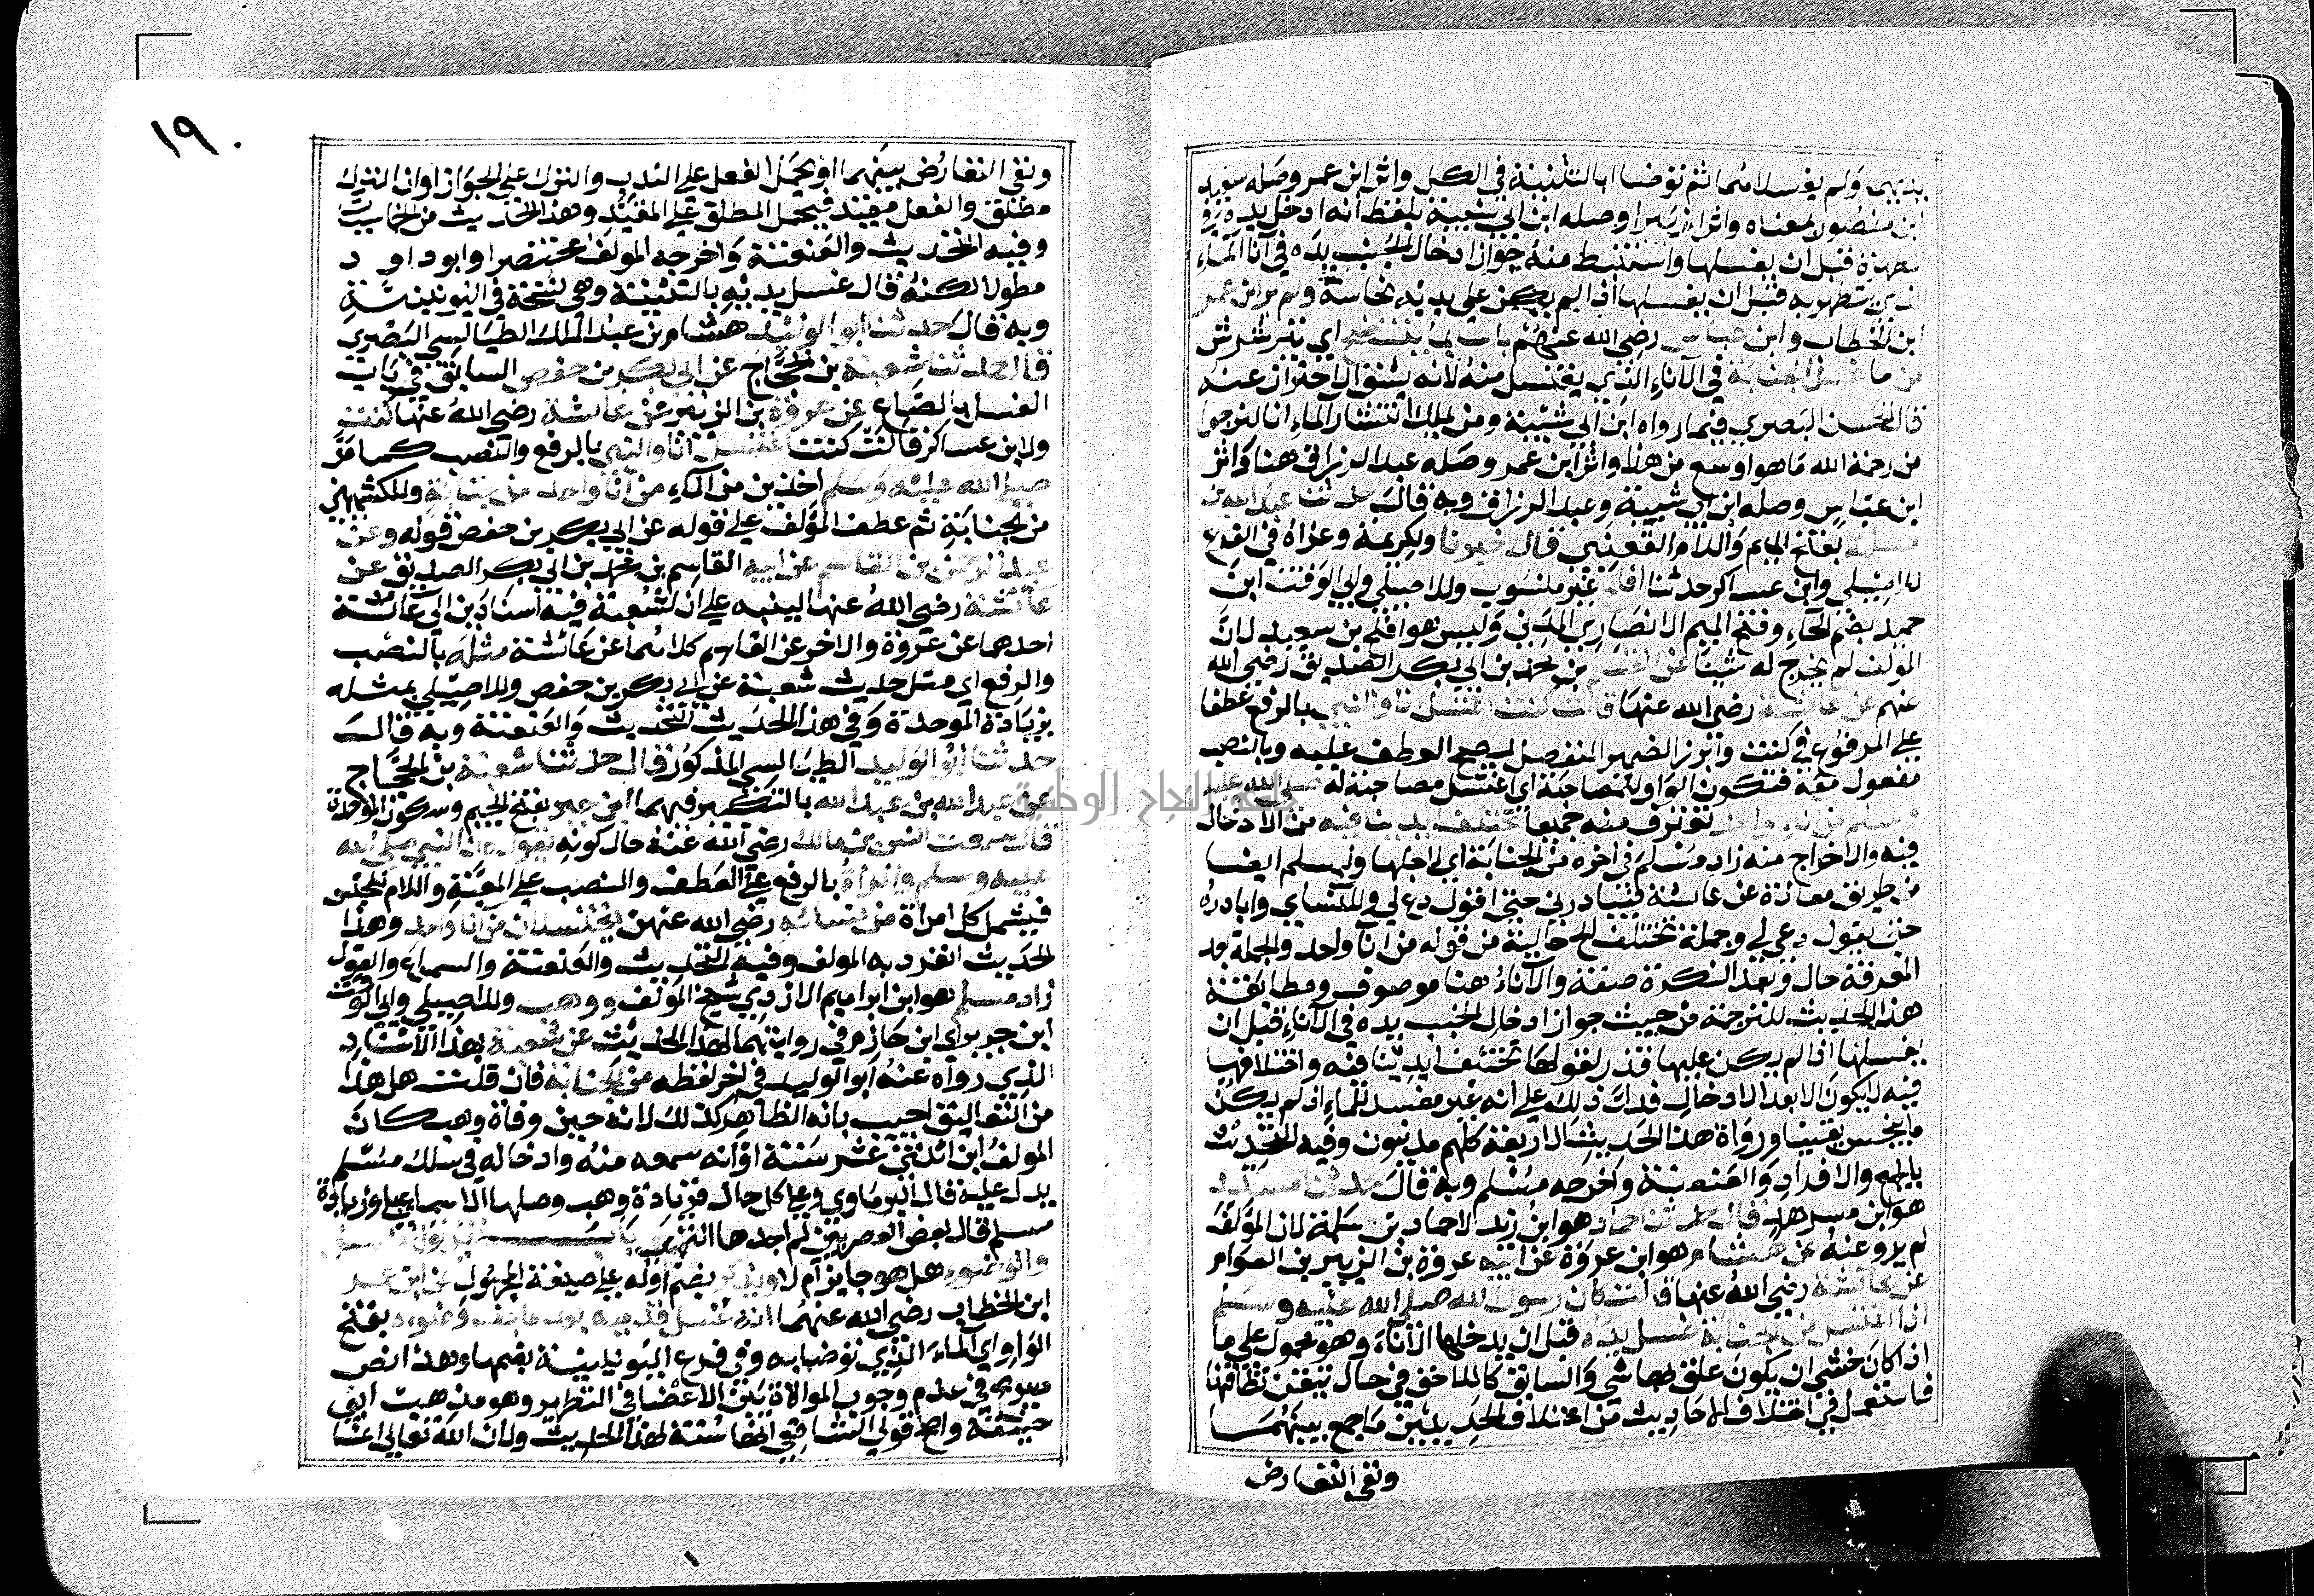 يديهما ولم يغسلاهما ثم توضا ابالتثنية في الكل واثر ابن عمر وصله سعيد
ابن منصور بمعناه واثر البراء وصله ابن ابي شيبة بلفظ انه ادخل يده في
المطهرة قبل ان يغسلها واستنبط منه جواز ادخال الجنب يده في اناء الماء
الذي يتطهر به قبل ان يغسلها اذا لم يكن على يديه نجاسة ولم ير ابن عمر
ابن الخطاب وابن عباس رضي الله عنهم باسا بما ينتضح اي يترشرش
من ما غسل الجنابة في الاناء الذي يغتسل منه لانه يشق الاحتراز عنه
قال الحسن البصري فيما رواه ابن ابي شيبة ومن يملك انتشار الماء انا لنرجوا
من رحمة الله ما هو اوسع من هذا واثر ابن عمر وصله عبد الرزاق هنا واثر
ابن عباس وصله ابن ابي شيبة وعبد الرزاق وبه قال حدثنا عبد الله بن
مسلمة بفتح الميم واللام القعنبي قال اخبرنا ولكريمة وعزاه في الفرع
للاصيلي وابن عساكر حدثنا افلح غير منسوب وللاصيلي وابي الوقت ابن
حميد بضم الحاء وفتح الميم الانصاري المدني وليس هو افلح بن سعيد لان
المولف لم يخرج له شيئا عن القاسم بن محمد بن ابي بكر الصديق رضي الله
عنهم عن عائشة رضي الله عنها قالت كنت اغتسل انا والنبي بالرفع عطفا
على المرفوع في كنت وابرز الضمير المنفصل ليصح العطف عليه وبالنصب
مفعول معه فتكون الواو للمصاحبة اي اغتسل مصاحبة له صلى الله عليه
وسلم من اناء واحد نغترف منه جميعا تختلف ايدينا فيه من الادخال
فيه والاخراج منه زاد مسلم في اخره من الجنابة اي لاجلها ولمسلم ايضا
من طريق معاذة عن عائشة فيبادرني حتى اقول دع لي وللنساي وابادره
حتى يقول دعي لي وجملة تختلف الخ حالية من قوله من اناء واحد والجملة بعد
المعرفة حال وبعد النكرة صفة والاناء هنا موصوف ومطابقة
هذا الحديث للترجمة من حيث جواز ادخال الجنب يده في الاناء قبل ان
يغسلها اذا لم يكن عليها قذر لقولها تختلف ايدينا فيه واختلافها
فيه لا يكون الا بعد الادخال فدل ذلك على انه غير مفسد للماء اذا لم يكن
ما ينجس يقينا ورواة هذا الحديث الاربعة كلهم مدنيون وفيه التحديث
بالجمع والافراد والعنعنة واخرجه مسلم وبه قال حدثنا مسدد
هو ابن مسرهد قال حدثنا حماد هو ابن زيد لا حماد بن سلمة لان المولف
لم يرو عنه عن هشام هو ابن عروة عن ابيه عروة بن الزبير بن العوام
عن عائشة رضي الله عنها قالت كان رسول الله صلى الله عليه وسلم
اذا اغتسل من الجنابة غسل يده قبل ان يدخلها الاناء وهو محمول على ما
اذا كان خشي ان يكون علق بها شي والسابق كاللاحق في حال تيقن نظافتها
فاستعمل في اختلاف الاحاديث من اختلاف الحديثين ما جمع بينهما
ونفي التعارض
١٩٠
ونفي التعارض بينهما او يحمل الفعل على الندب والترك على الجواز او ان الترك
مطلق والفعل مقيد فيحمل المطلق على المقيد وهذا الحديث من الخماسيات
وفيه التحديث والعنعنة واخرجه المولف مختصرا وابو داود
مطولا لكنه قال غسل يديه بالتثنية وهي نسخة في اليونينية
وبه قال حدثنا ابو الوليد هشام بن عبد الملك الطيالسي البصري
قال حدثنا شعبة بن الحجاج عن ابي بكر بن حفص السابق في باب
الغسل بالصاع عن عروة بن الزبير عن عائشة رضي الله عنها كنت
ولابن عساكر قالت كنت اغتسل انا والنبي بالرفع والنصب كما مر
صلى الله عليه وسلم اخذين من الماء من اناء واحد من جنابة وللكشميهني
من الجنابة ثم عطف المولف على قوله عن ابي بكر بن حفص قوله وعن
عبد الرحمن بن القاسم عن ابيه القاسم بن محمد بن ابي بكر الصديق عن
عائشة رضي الله عنها لينبه على ان لشعبة فيه اسنادين الى عائشة
احدهما عن عروة والاخر عن القاسم كلاهما عن عائشة مثله بالنصب
والرفع اي مثل حديث شعبة عن ابي بكر بن حفص وللاصيلي بمثله
بزيادة الموحدة وفي هذا الحديث التحديث والعنعنة وبه قال
حدثنا ابو الوليد الطيالسي المذكور قال حدثنا شعبة بن الحجاج
عن عبد الله بن عبد الله بالتكبير فيهما ابن جبر بفتح الجيم وسكون الموحدة
قال سمعت انس بن مالك رضي الله عنه حال كونه يقول كان النبي صلى الله
عليه وسلم والمراة بالرفع على العطف والنصب على المعية واللام للجنس
فيشمل كل امراة من نسائه رضي الله عنهن يغتسلان من اناء واحد وهذا
الحديث انفرد به المولف وفيه التحديث والعنعنة والسماع والقول
زاد مسلم هو ابن ابراهيم الازدي شيخ المولف ووهب وللاصيلي وابي الوقت
ابن جرير اي ابن حازم في روايتهما لهذا الحديث عن شعبة بهذا الاسناد
الذي رواه عنه ابو الوليد في اخر لفظه من الجنابة فان قلت هل هذا
من التعاليق اجيب بانه الظاهر كذلك لانه حين وفاة وهب كان
المولف ابن اثنتي عشر سنة او انه سمعه منه وادخاله في سلك مسلم
يدل عليه قال البرماوي وعلى كل حال فزيادة وهب وصلها الاسماعيلي وزيادة
مسلم قال بعض العصريين لم اجدها باب تفريق الغسل
والوضوء هل هو جايز ام لا ويذكر بضم اوله على صيغة المجهول عن ابن عمر
ابن الخطاب رضي الله عنهما انه غسل قدميه بعد ما جف وضوءه بفتح
الواو اي الماء الذي توضا به وفي فرع اليونينية بضمها وهذا نص
في عدم وجوب الموالاة بين الاعضا في التطهير وهو مذهب ابي
حنيفة واصح قولي الشافعي لهذا الحديث ولان الله تعالى انما
جامعة النجاح الوطنية